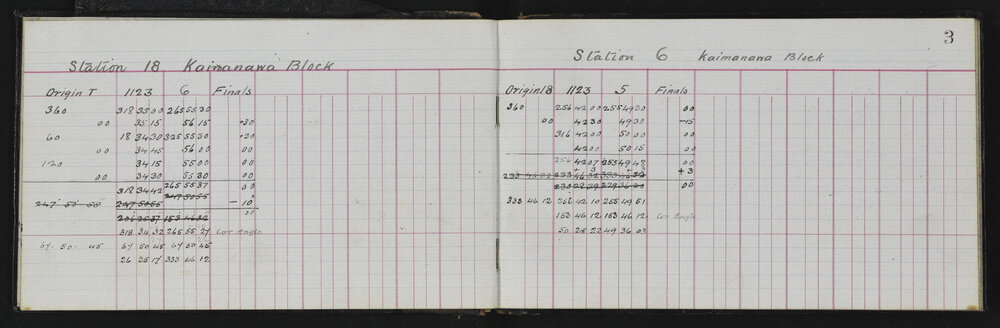 Station 18 Kaimanawa Block
Origin T 1123 6 Finals
360 318 35 00 265 55 30
00 35 15 56 15 +30
60 18 34 30 325 55 30 +30
00 34 45 56 00 00
120 34 15 55 00 00
00 34 30 55 30 00
318 34 42 265 55 37 00
247 50 55 247 50 55 247 50 55 -10
00
318 34 32 265 55 27 Cor Angle
67 50 45 67 50 45 67 50 45
26 25 17 333 46 12
3
Station 6 Kaimanawa Block
Origin 18 1123 5 Finals
360 256 42 00 255 49 30 00
00 42 30 49 30 -15
316 42 00 50 00 00
42 00 50 15 00
256 42 07 255 49 48 00
+3 3 +3
00
333 46 12 256 42 10 255 49 51
153 46 12 153 46 12 Cor Angle
50 28 22 49 36 03